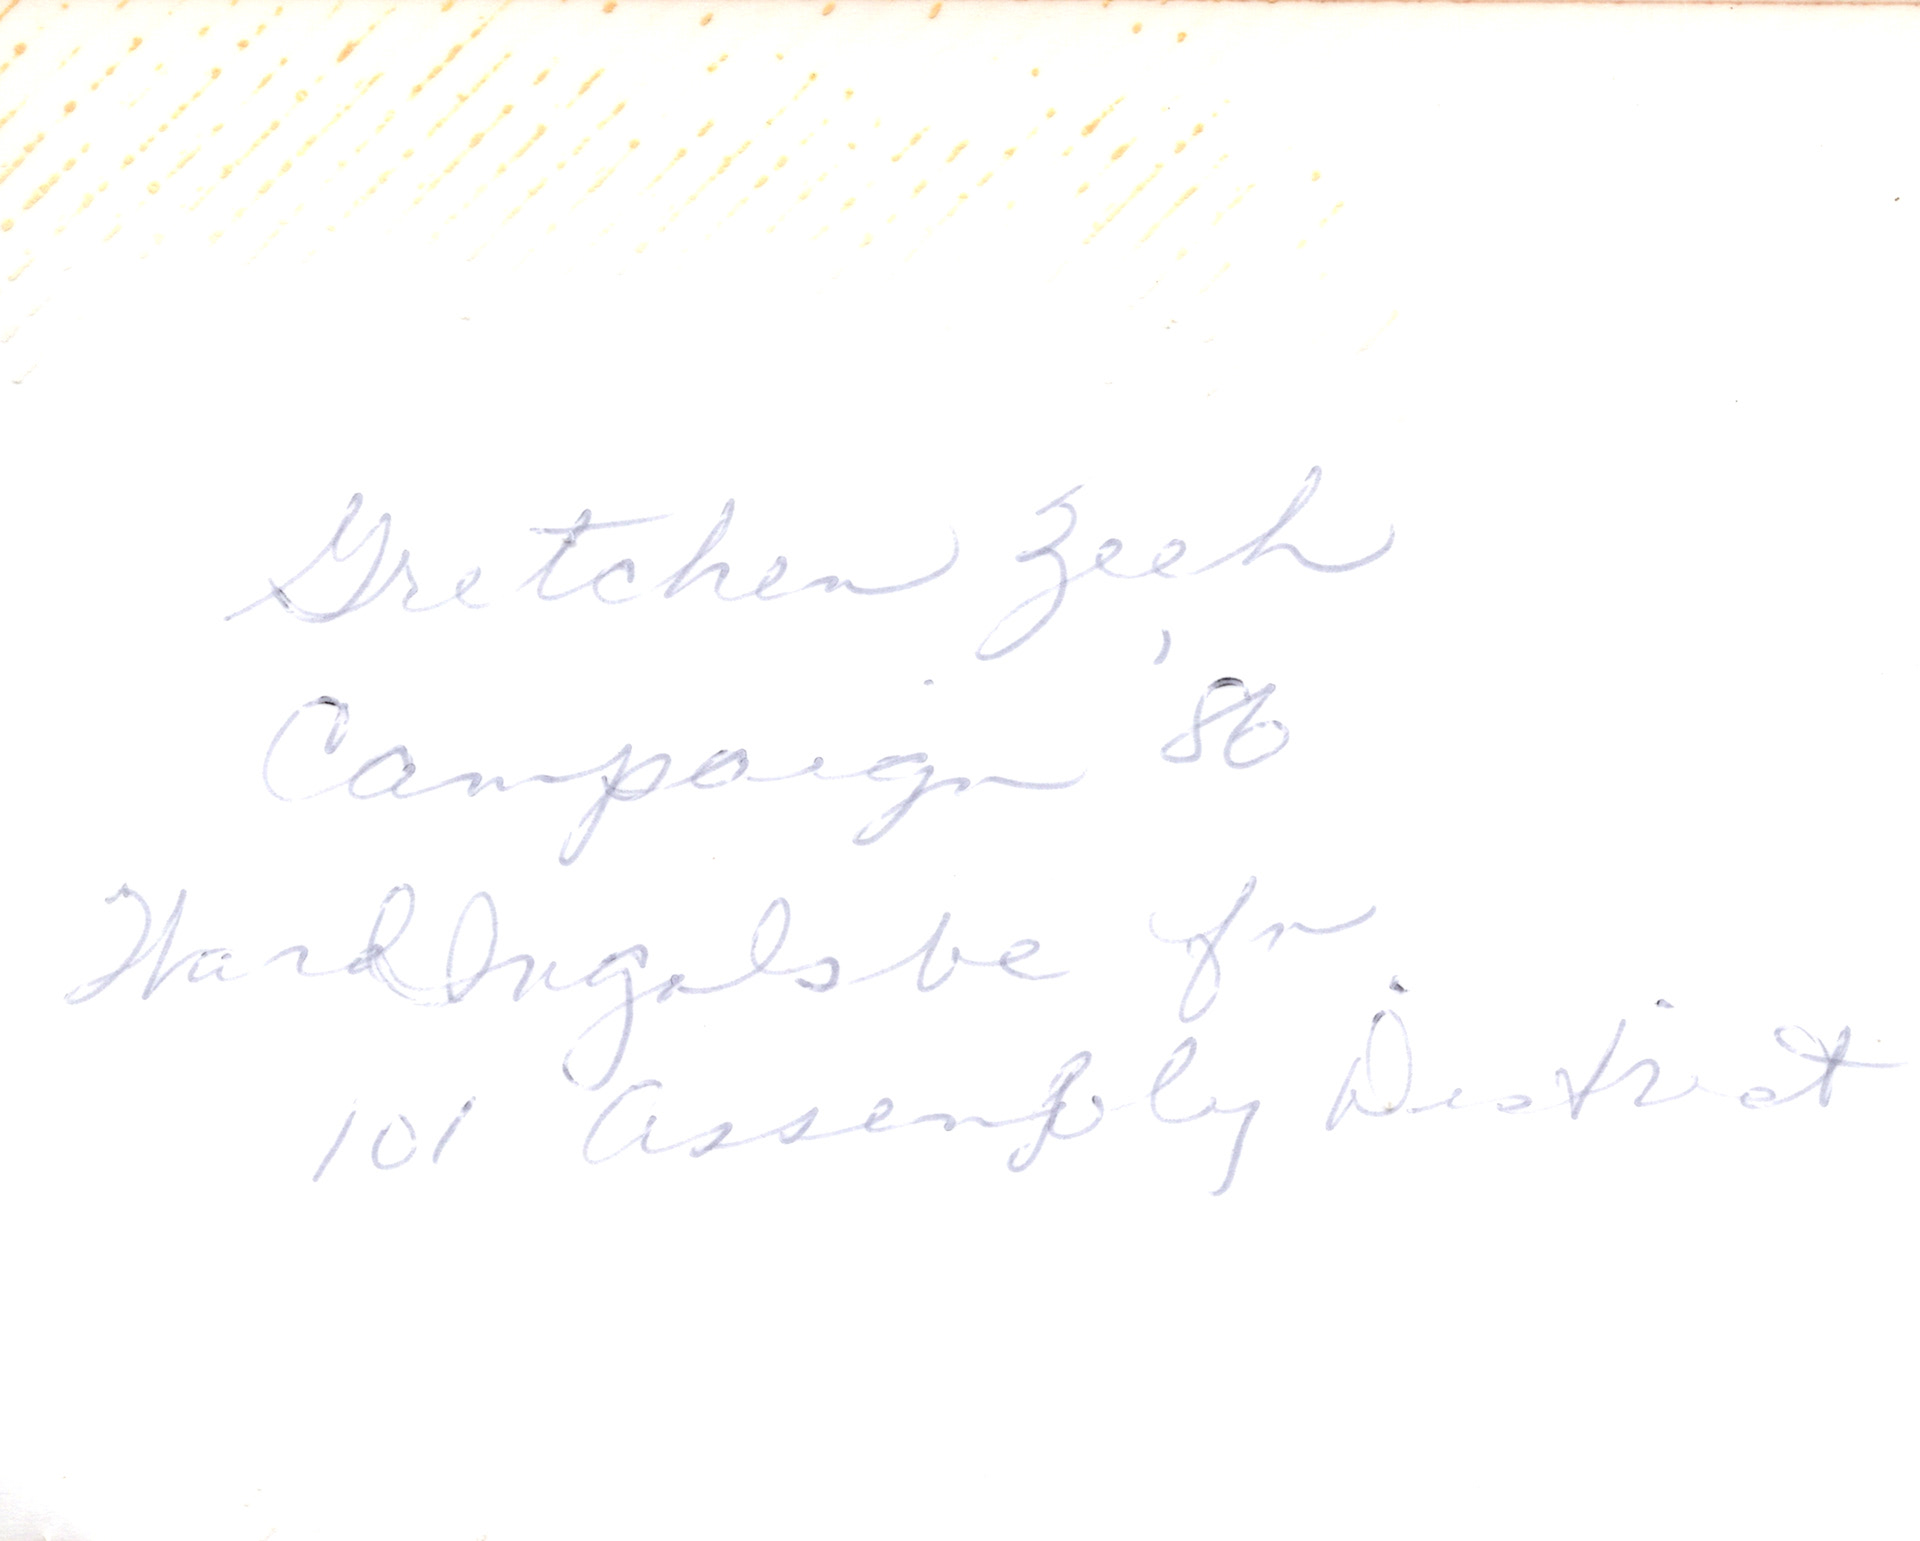 Gretchen Zeeh
Campaign '86
Ward Ingalsbe for
101 Assembly District